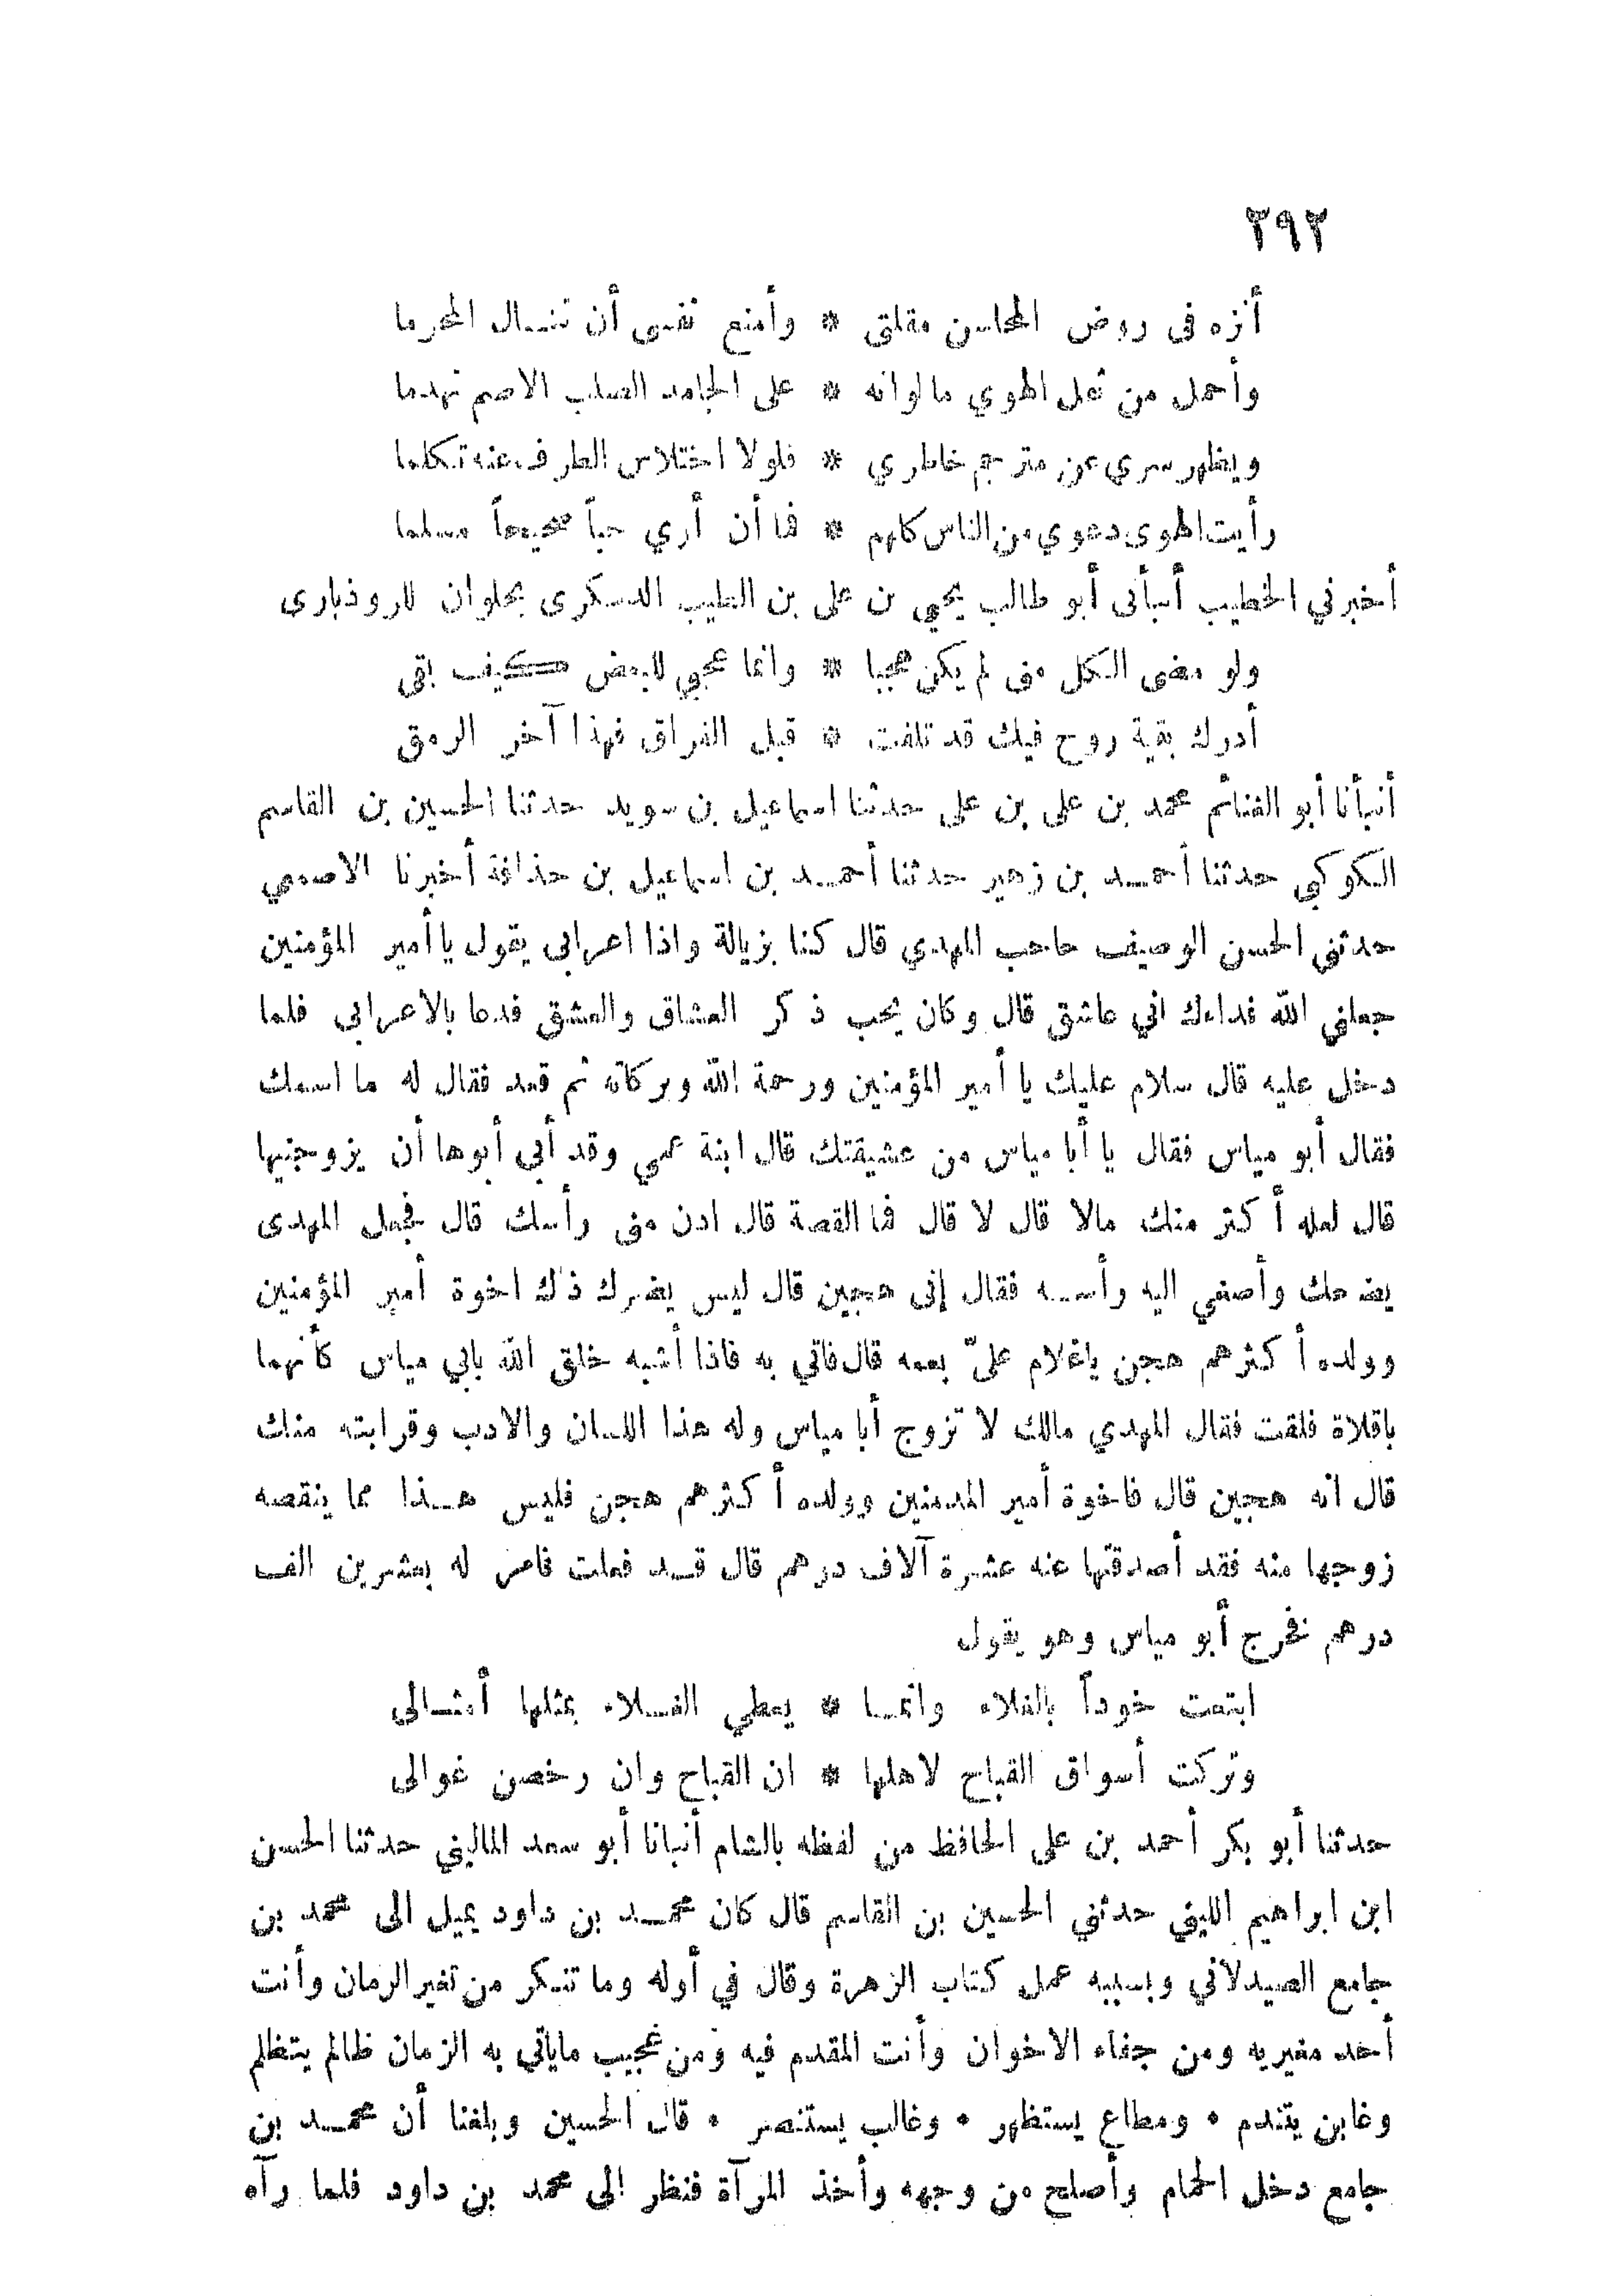 ٣٩٢
أنزه فى روض المحاسن مقلتى * وأمنع نفسى أن تنـال المحرما
وأحمل من ثقل الهوي مالوانه * على الجامد الصلب الاصم تهدما
ويظهر سري عن مترجم خاطري * فلولا اختلاس الطرف عنه تكلما
رأيت الهوى دعوي من الناس كلهم * فما أن أري حباً صحيحاً مسلما
أخبرني الخطيب أنبأنى أبو طالب يحيي بن على بن الطيب الدسكرى بحلوان للروذبارى
ولو مضى الكل منى لم يكن عجبا * وانما عجبي للبعض كيف بقى
أدرك بقية روح فيك قد تلفت * قبل الفراق فهذا آخر الرمق
أنبأنا أبو الغنائم محمد بن على بن على حدثنا اسماعيل بن سويد حدثنا الحسين بن القاسم
الكوكبي حدثنا أحمـد بن زهير حدثنا أحمـد بن اسماعيل بن حذافة أخبرنا الاصمعي
حدثني الحسن الوصيف حاجب المهدي قال كنا بزبالة واذا اعرابى يقول يا أمير المؤمنين
جعلني الله فداءك اني عاشق قال وكان يحب ذكر العشاق والعشق فدعا بالاعرابى فلما
دخل عليه قال سلام عليك يا أمير المؤمنين ورحمة الله وبركاته ثم قعد فقال له ما اسمك
فقال أبو مياس فقال يا أبا مياس من عشيقتك قال ابنة عمي وقد أبي أبوها أن يزوجنيها
قال لعله أكثر منك مالا قال لا قال فما القصة قال ادن منى رأسك قال فجعل المهدى
يضحك وأصغي اليه رأسـه فقال إنى هجين قال ليس يضرك ذلك اخوة أمير المؤمنين
وولده أكثرهم هجن ياغلام عليّ بعمه قال فاتي به فاذا أشبه خلق الله بابي مياس كأنهما
باقلاة فلقت فقال المهدي مالك لا تزوج أبا مياس وله هذا اللسان والادب وقرابته منك
قال انه هجين قال فاخوة أمير المؤمنين وولده أكثرهم هجن فليس هـذا مما ينقصه
زوجها منه فقد أصدقتها عنه عشرة آلاف درهم قال قـد فعلت فامر له بعشرين الف
درهم فخرج أبو مياس وهو يقول
ابتعت خوداً بالغلاء وانمـا * يعطي الغـلاء بمثلها أمثـالى
وتركت أسواق القباح لاهلها * ان القباح وان رخصن غوالى
حدثنا أبو بكر أحمد بن على الحافظ من لفظه بالشام أنبانا أبو سعد الماليني حدثنا الحسن
ابن ابراهيم الليثي حدثني الحسين بن القاسم قال كان محمـد بن داود يميل الى محمد بن
جامع الصيدلاني وبسببه عمل كتاب الزهرة وقال في أوله وما تنكر من تغير الزمان وأنت
أحد مغيريه ومن جفاء الاخوان وأنت المقدم فيه ومن عجيب ماياتي به الزمان ظالم يتظلم
وغابن يتندم • ومطاع يستظهر • وغالب يستنصر • قال الحسين وبلغنا أن محمـد بن
جامع دخل الحمام وأصلح من وجهه وأخذ المرآة فنظر الى محمد بن داود فلما رآه